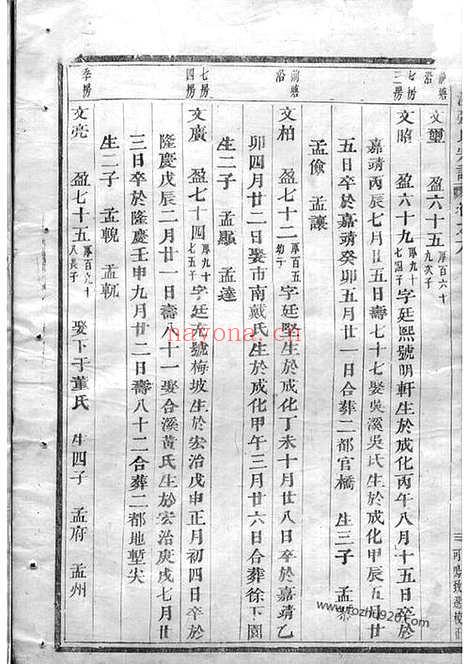 前塘
沿
文璽　盈六十五厚百六十九次子
七房
三房
文昭　盈六十九厚九十七詔子字廷熙號明軒生於成化丙午八月十五日卒於
嘉靖丙辰七月廿五日壽七十七娶吳溪吳氏生於成化甲辰五月廿
五日卒於嘉靖癸卯五月廿一日合葬二都官橋　生三子　孟泰
孟儉　孟讓
前塘
沿
文柏　盈七十二厚百五幼子字廷堅生於成化丁未十月廿八日卒於嘉靖乙
卯四月廿二日娶市南戴氏生於成化甲午三月廿六日合葬徐下園
生二子　孟顒　孟達
七房
四房
文廣　盈七十四厚九十七五子字廷左號梅坡生於宏治戊申正月初四日卒於
隆慶戊辰二月廿一日壽八十一娶合溪黃氏生於宏治庚戌七月廿
三日卒於隆慶壬申九月廿二日壽八十二合葬二都地塹尖
生二子　孟軦　孟軏
季房
文亮　盈七十五厚百九十八長子　娶下于董氏　生四子　孟府　孟州
nayona.cn
www.fozhu920.com